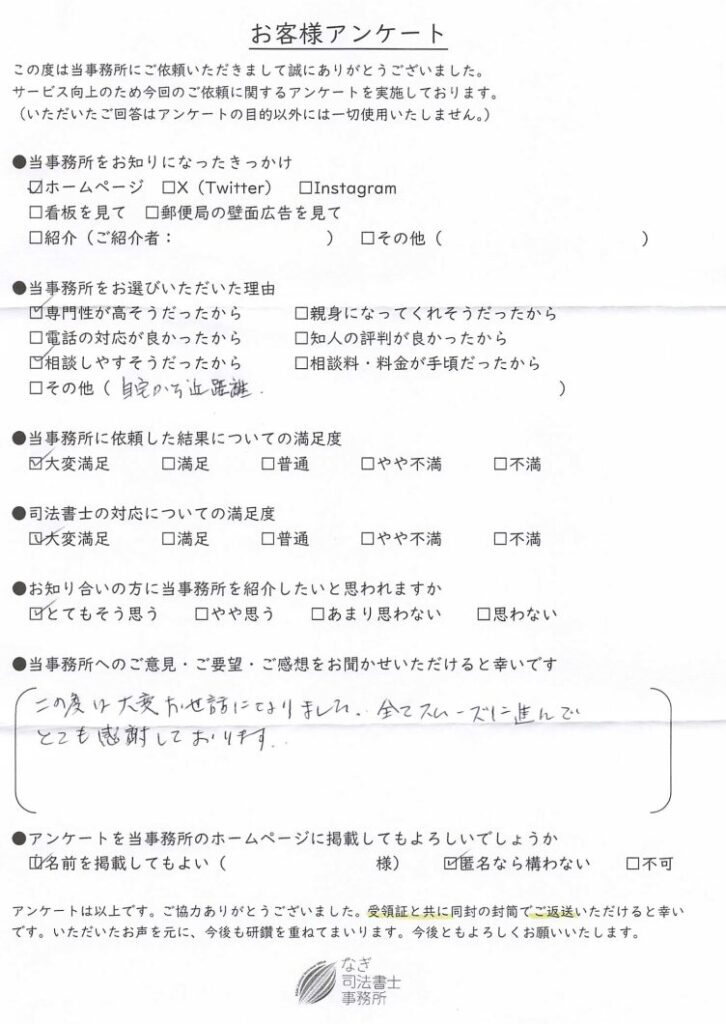 お客様アンケート
この度は当事務所にご依頼いただきまして誠にありがとうございました。
サービス向上のため今回のご依頼に関するアンケートを実施しております。
（いただいたご回答はアンケートの目的以外には一切使用いたしません。）
●当事務所をお知りになったきっかけ
☑ホームページ □X（Twitter） □Instagram
□看板を見て □郵便局の壁面広告を見て
□紹介（ご紹介者： ） □その他（ ）
●当事務所をお選びいただいた理由
☑専門性が高そうだったから □親身になってくれそうだったから
□電話の対応が良かったから □知人の評判が良かったから
☑相談しやすそうだったから □相談料・料金が手頃だったから
□その他（ 自宅から近距離. ）
●当事務所に依頼した結果についての満足度
☑大変満足 □満足 □普通 □やや不満 □不満
●司法書士の対応についての満足度
☑大変満足 □満足 □普通 □やや不満 □不満
●お知り合いの方に当事務所を紹介したいと思われますか
☑とてもそう思う □やや思う □あまり思わない □思わない
●当事務所へのご意見・ご要望・ご感想をお聞かせいただけると幸いです
この度は大変お世話になりました。全てスムーズに進んで
とても感謝しております。
●アンケートを当事務所のホームページに掲載してもよろしいでしょうか
☑名前を掲載してもよい（ 様） ☑匿名なら構わない □不可
アンケートは以上です。ご協力ありがとうございました。受領証と共に同封の封筒でご返送いただけると幸い
です。いただいたお声を元に、今後も研鑽を重ねてまいります。今後ともよろしくお願いいたします。
なぎ
司法書士
事務所